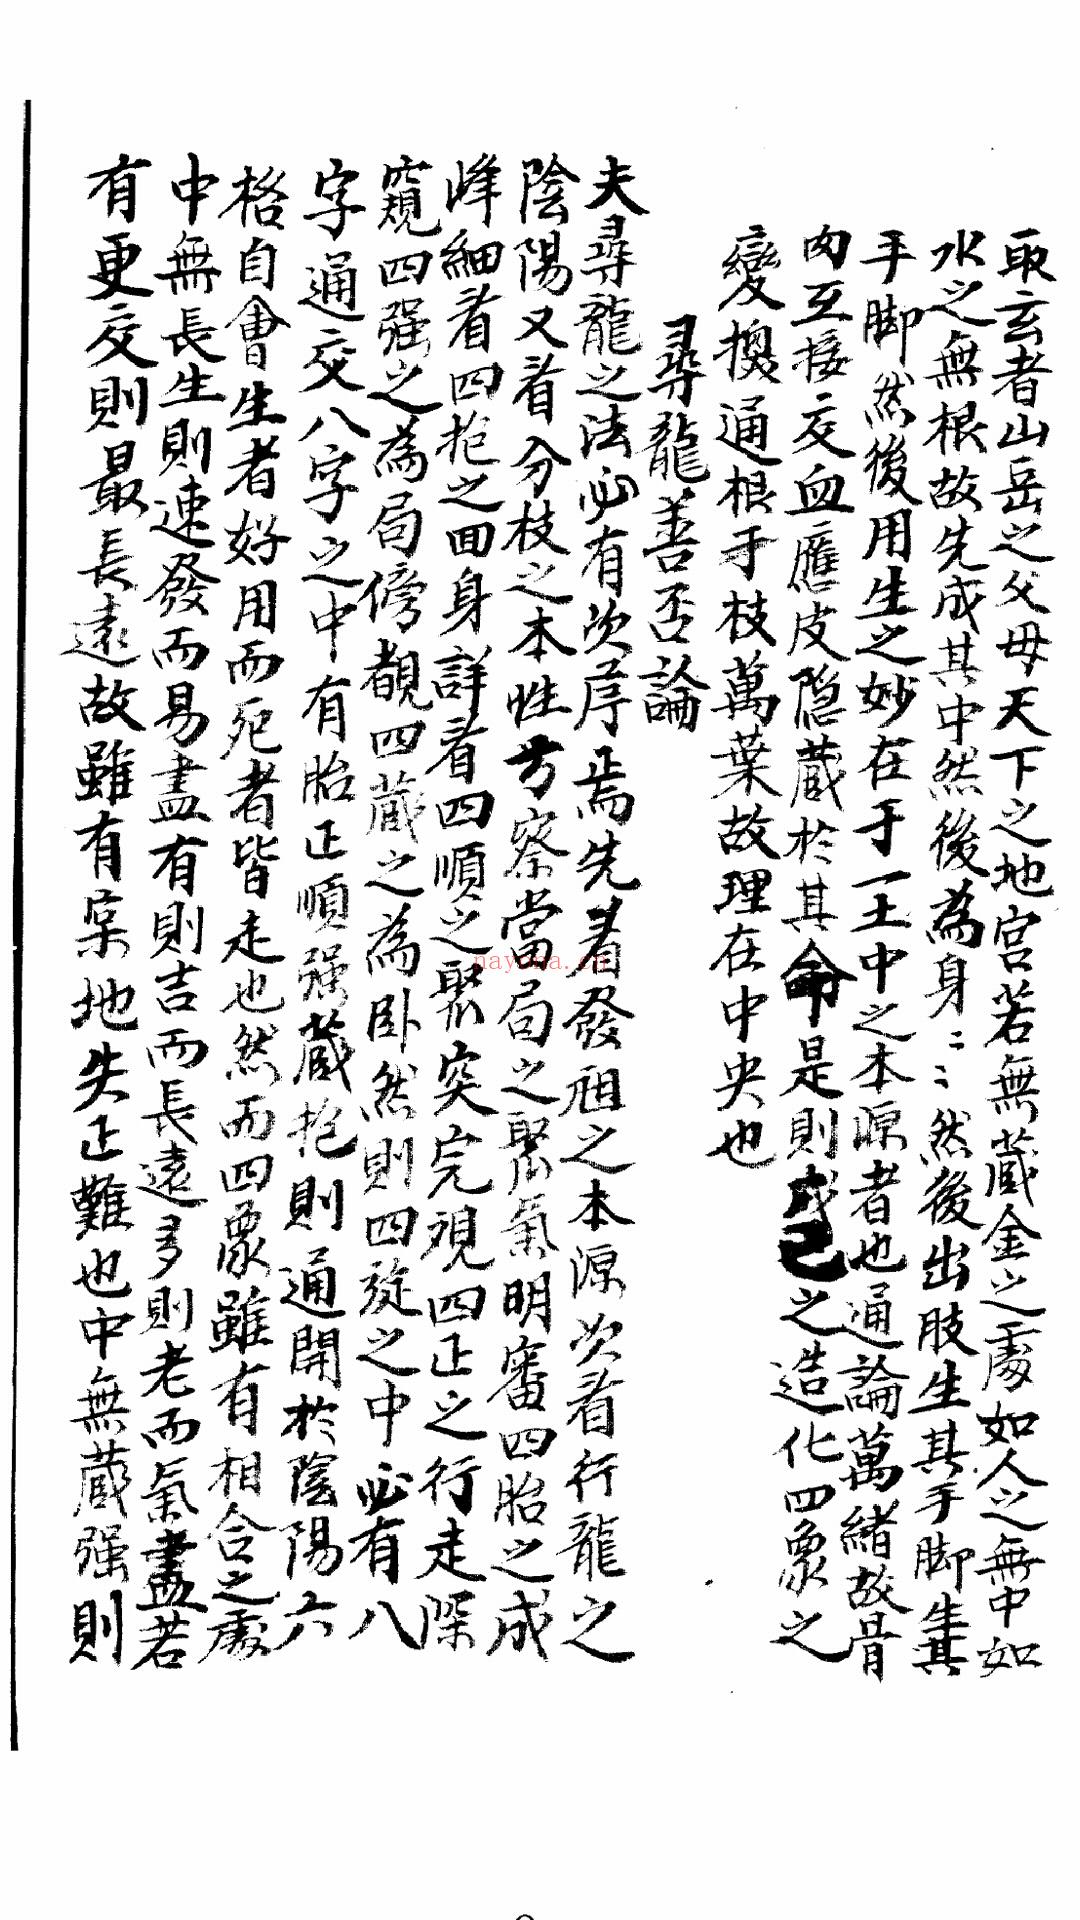 取玄者山岳之父母天下之地宮若無藏金之處如人之無中如
水之無根故先成其中然後為身〻〻然後出肢生其手脚生其
手脚然後用生之妙在于一土中之本源者也通論萬緒故骨
肉互接交血應皮隐藏於其命是則戊己之造化四象之
變換通根于枝萬葉故理在中央也
尋龍善否論
夫尋龍之法必有次序焉先看發祖之本源次看行龍之
陰陽又看分枝之本性方察當局之聚氣明審四胎之成
峰細看四抱之回身詳看四順之聚突完視四正之行走深
窺四强之為局傍覩四藏之為卧然則四旋之中必有八
字通交八字之中有胎正順强藏抱則通開於陰陽六
格自會生者好用而死者皆走也然而四象雖有相合之處
中無長生則速發而易盡有則吉而長遠多則老而氣盡若
有更交則最長遠故雖有棠地失正難也中無藏强則
nayona.cn